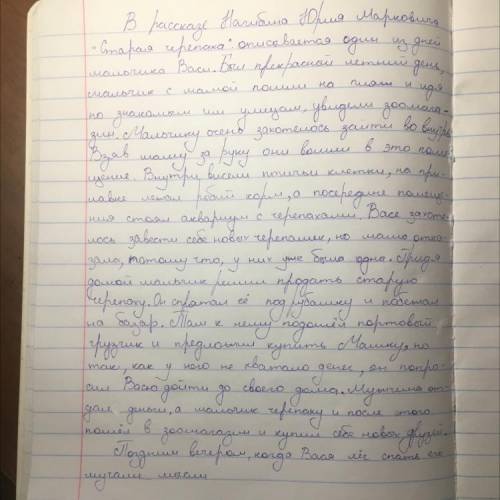 В рассказе Нагибина Юрия Марковича
"Старая черепаха" описовается один из дней
мальчика Васи. Был прекрасной летний день,
мальчик с мамой пошли на пляж и идя
по знакомым им улицам, увидели зоомага-
зин. Мальчику очень захотелось зайти во внутрь
Взяв маму за руку они вошли в это поме
щение. Внутри висели птичьи клетки, на при-
лавке лежал рыбий корм, а посередине помеще-
ния стоял аквариум с черепахами. Васе захоте-
лось завести себе новых черепашек, но мама отка
зала, потому что, у них уже была одна. Придя
домой мальчик решил продать старую
черепаху. Он спрятал её под рубашку и побежал
на базар. Там к нему подошёл портовый
грузчик и предложил купить Машку, но
так, как у него не хватало денег, он попро-
сил Васю дойти до своего дома. Мужчина от-
дал деньги, а мальчик черепаху и после этого
пошёл в зоомагазин и купил себе новых друзей.
Поздним вечером, когда Вася лёг спать его
мучали мысли